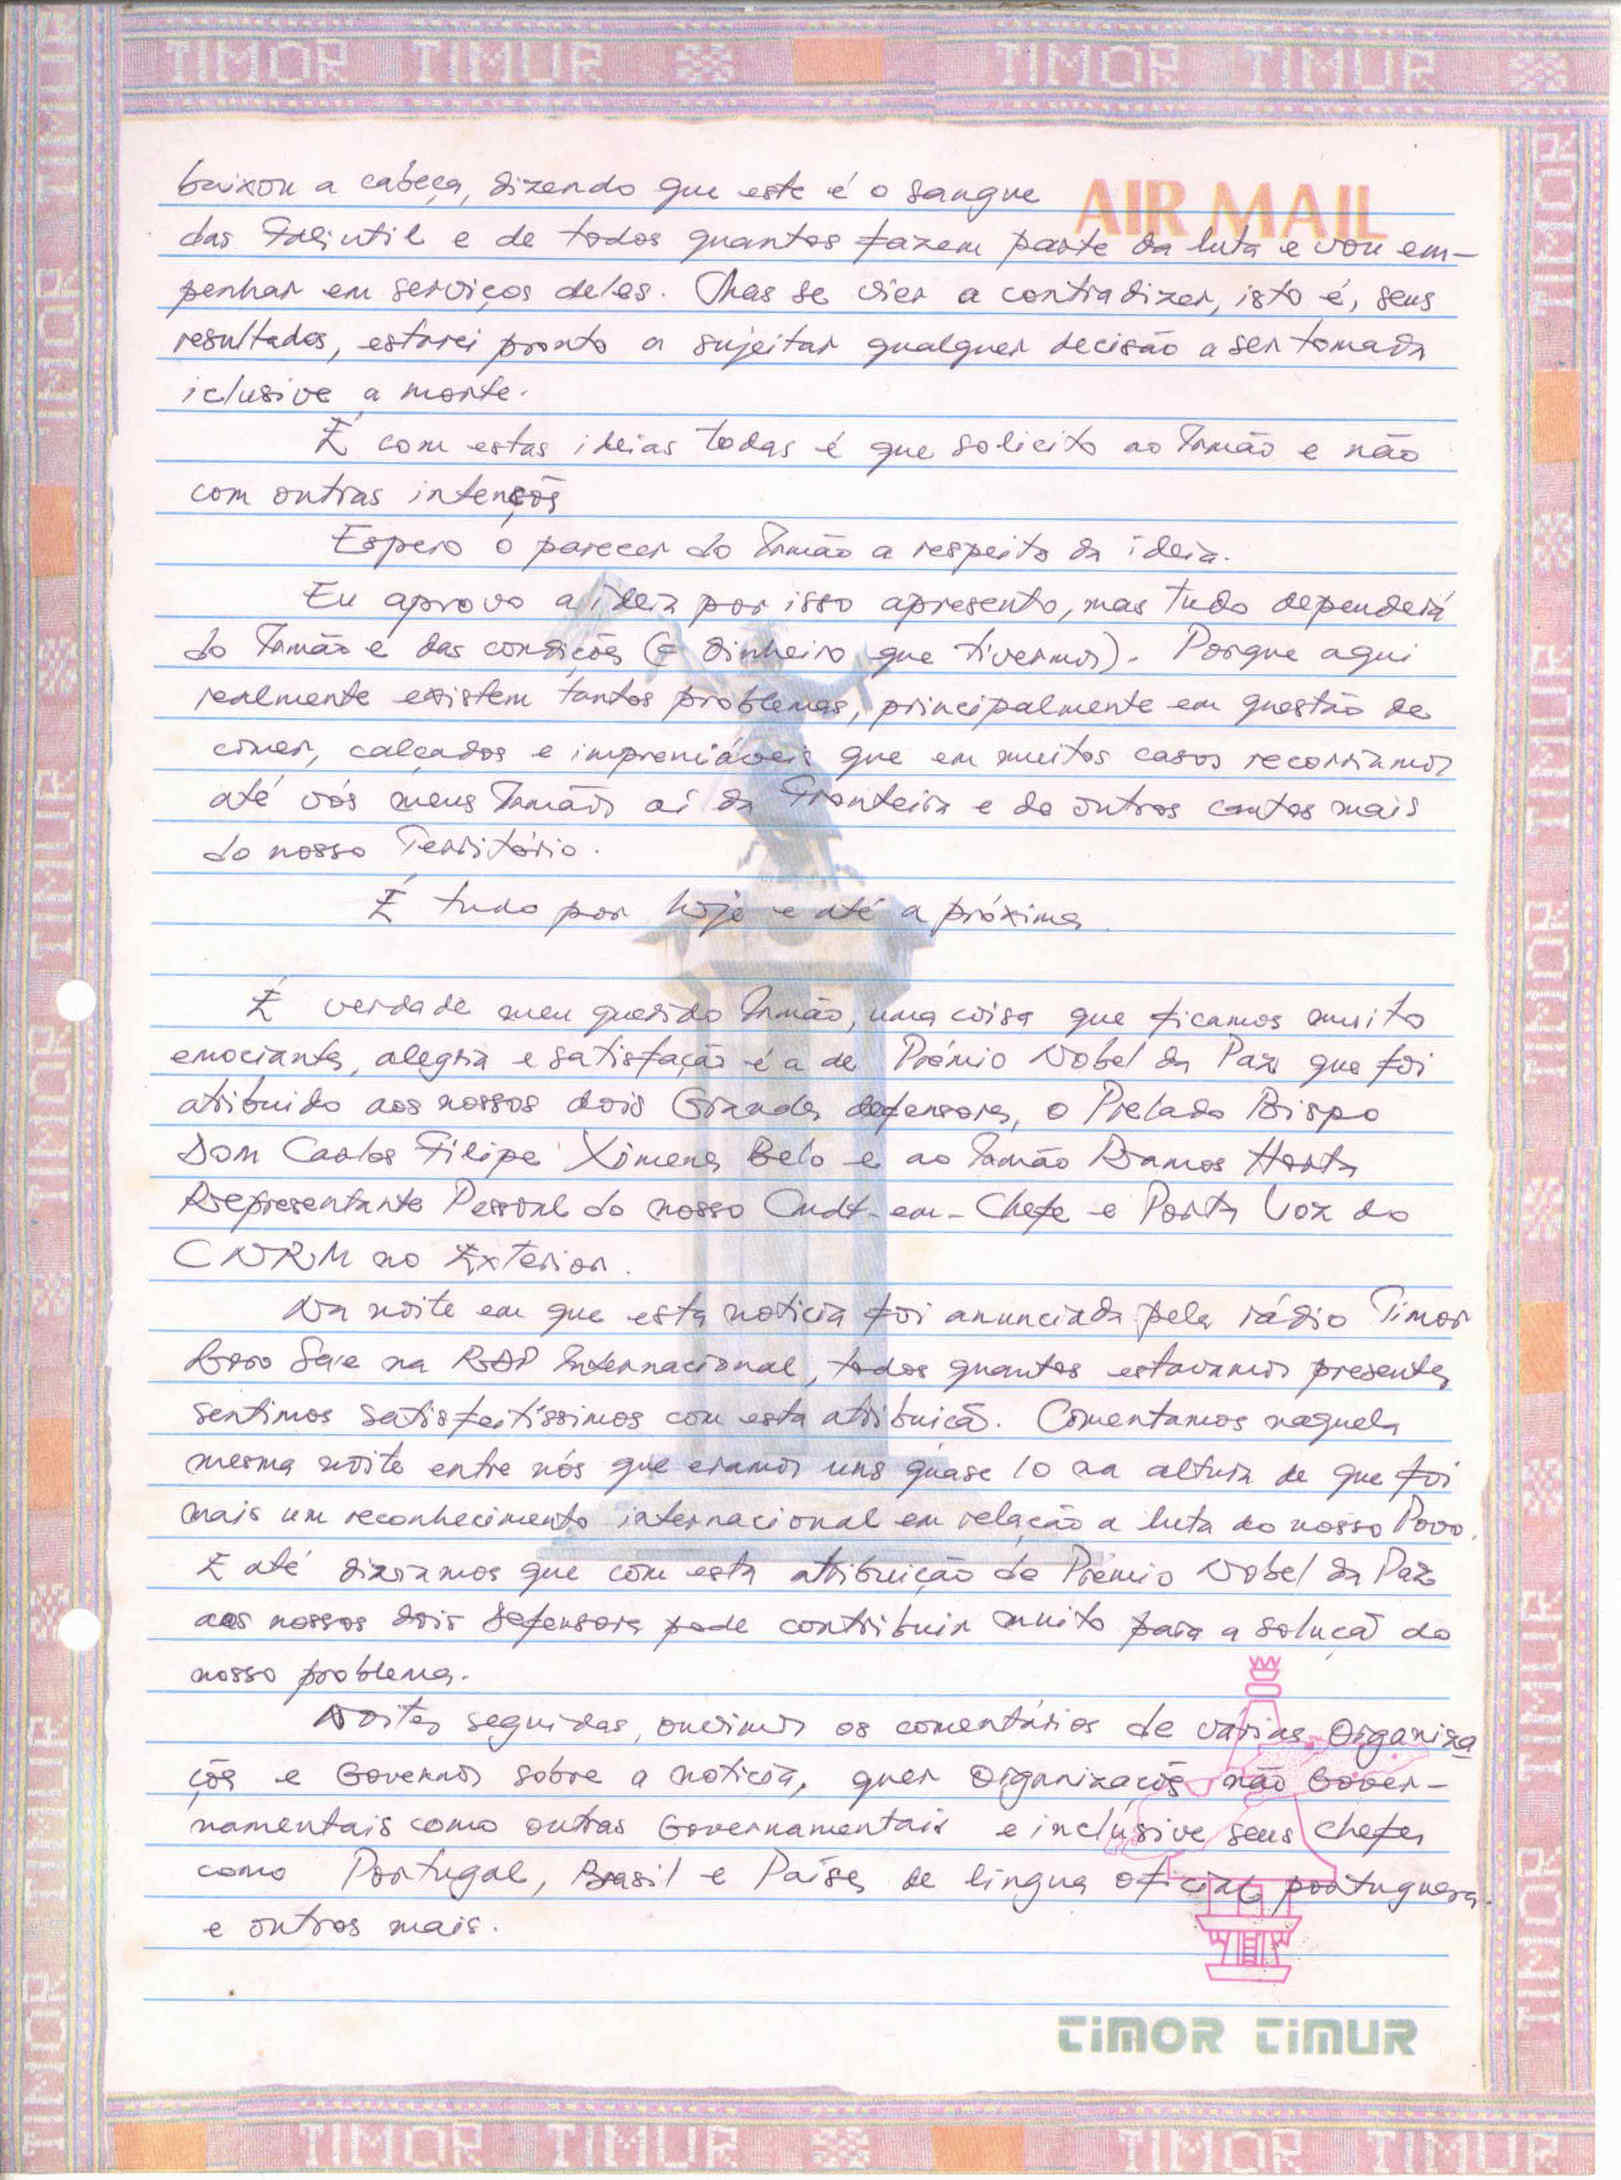 TIMOR TIMUR TIMOR TIMUR
AIR MAIL
baixou a cabeça, dizendo que este é o sangue
das Falintil e de todos quantos fazem parte da luta e vou em-
penhar em serviços deles. Mas se vier a contradizer, isto é, seus
resultados, estarei pronto a sujeitar qualquer decisão a ser tomada
iclusive a morte.
É com estas ideias todas é que solicito ao Irmão e não
com outras intenções
Espero o parecer do Irmão a respeito da ideia.
Eu aprovo a ideia por isso apresento, mas tudo dependerá
do Irmão e das condições (e dinheiro que tivermos). Porque aqui
realmente existem tantos problemas, principalmente em questão de
comer, calçados e impreniáveis que em muitos casos recorriamos
até vós meus Irmãos aí da Fronteira e do outros cantos mais
do nosso Território.
É tudo por hoje e até a próxima
É verdade meu querido Irmão, uma coisa que ficamos muito
emociantes, alegria e satisfação é a de Prémio Nobel da Paz que foi
atribuido aos nossos dois Grandes defensores, o Prelado Bispo
Dom Carlos Filipe Ximenes Belo e ao Irmão Ramos Horta
Representante Pessoal do nosso Cmdt-em-Chefe e Porta Voz do
CNRM no Exterior.
Na noite em que esta noticia foi anunciada pela rádio Timor
Loro Sae na RDP Internacional, todos quantos estavamos presentes
sentimos satisfeitíssimos com esta atribuicã. Comentamos naquela
mesma noite entre nós que eramos uns quáse 10 na altura de que foi
mais um reconhecimento internacional em relação a luta do nosso Povo.
E até diziamos que com esta atribuição de Prémio Nobel da Paz
aos nossos dois defensores pode contribuir muito para a soluçã do
nosso problema.
Noites seguidas, ouvimos os comentários de varias Organiza
ções e Governos sobre a noticia, quer Organizações não Gover-
namentais como outras Governamentais e inclusive seus chefes
como Portugal, Brasil e Países de língua oficial portuguesa.
e outros mais.
TIMOR TIMUR
TIMOR TIMUR TIMOR TIMUR